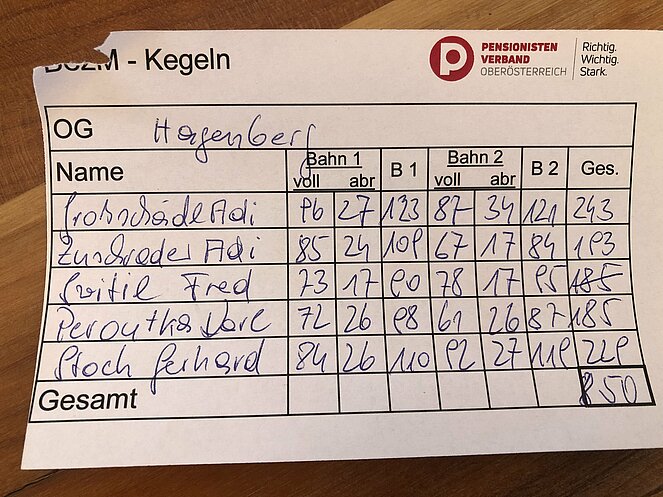 BezM - Kegeln
PENSIONISTEN VERBAND OBERÖSTERREICH
Richtig. Wichtig. Stark.
OG Hagenberg
Name Bahn 1 voll abr B 1 Bahn 2 voll abr B 2 Ges.
Adi 96 27 123 87 34 121 243
Adi 85 24 109 67 17 84 193
Fred 73 17 90 78 17 95 185
Peroutka Karl 72 26 98 61 26 87 185
Stoch Gerhard 84 26 110 92 27 119 229
Gesamt 850